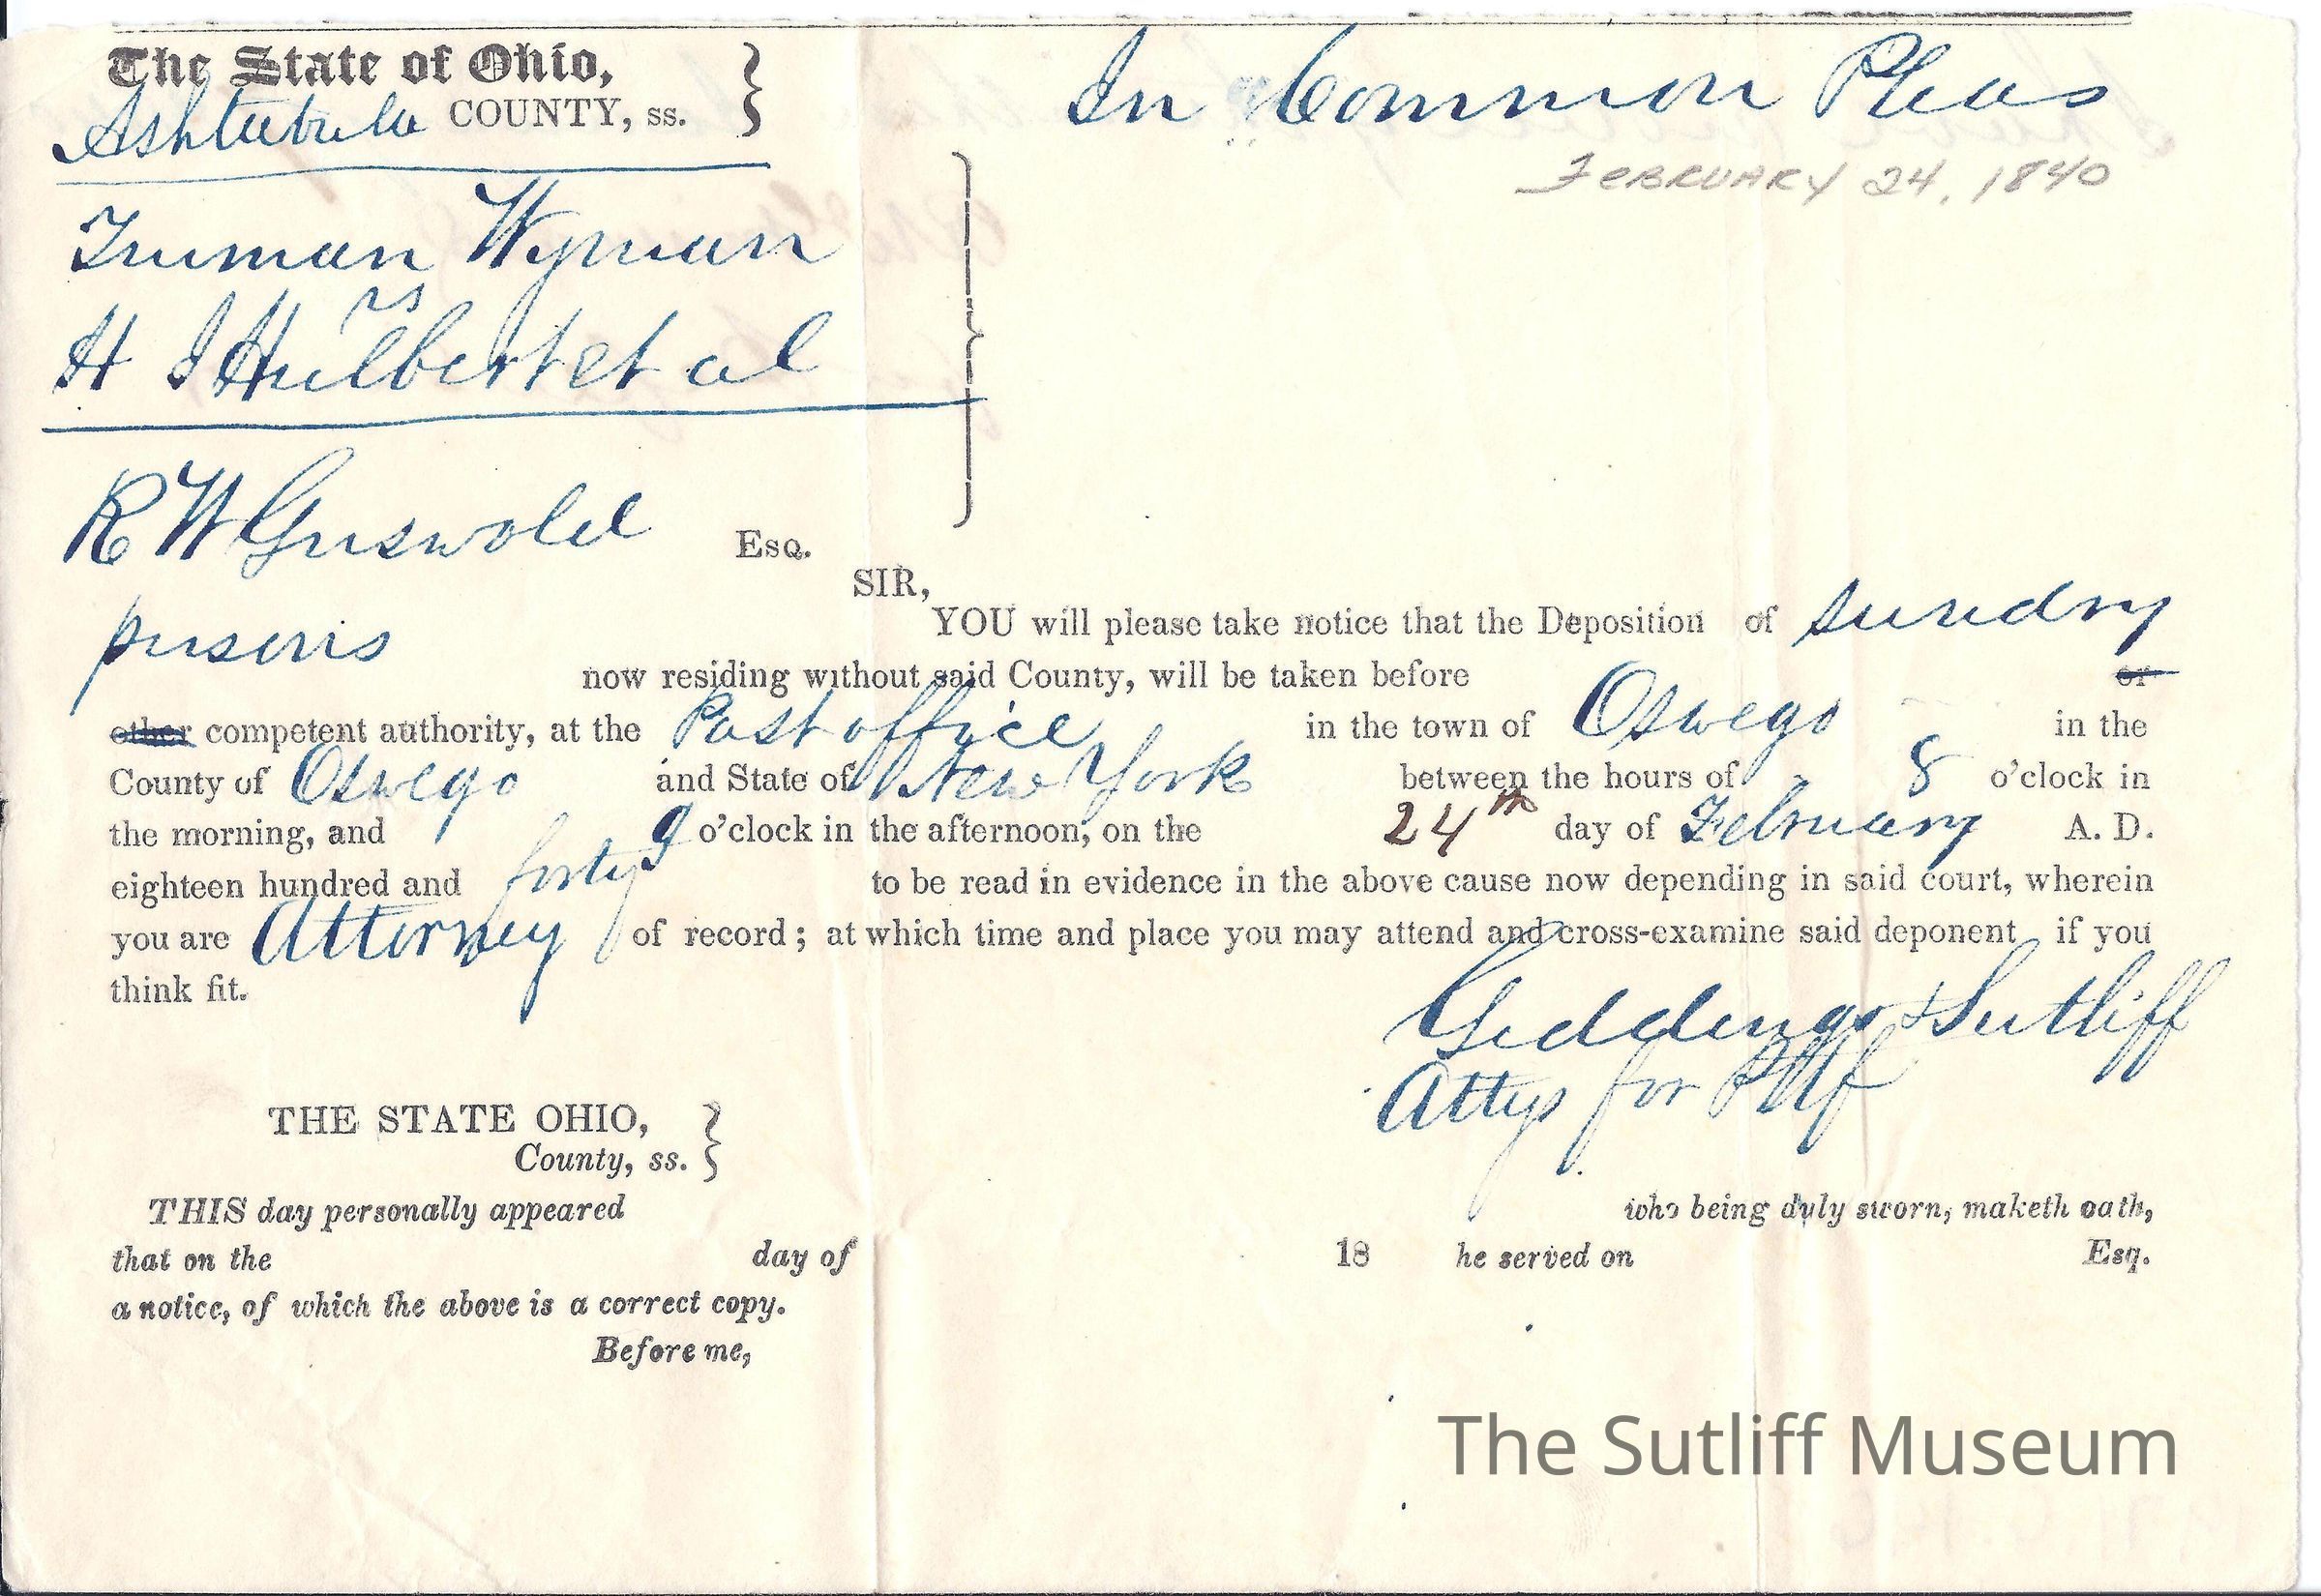 The State of Ohio,
Ashtabula COUNTY, ss.
In Common Pleas
FEBRUARY 24, 1840
Truman Wyman
vs
H I Hulbert et al
R W Griswold Esq.
SIR,
YOU will please take notice that the Deposition of sundry
persons
now residing without said County, will be taken before or
other competent authority, at the Post office in the town of Oswego in the
County of Oswego and State of New York between the hours of 8 o'clock in
the morning, and 9 o'clock in the afternoon, on the 24th day of February A. D.
eighteen hundred and forty to be read in evidence in the above cause now depending in said court, wherein
you are Attorney of record; at which time and place you may attend and cross-examine said deponent if you
think fit.
Giddings & Sutliff
Attys for Pltf
THE STATE OHIO,
County, ss.
THIS day personally appeared who being duly sworn, maketh oath,
that on the day of 18 he served on Esq.
a notice, of which the above is a correct copy.
Before me,
The Sutliff Museum